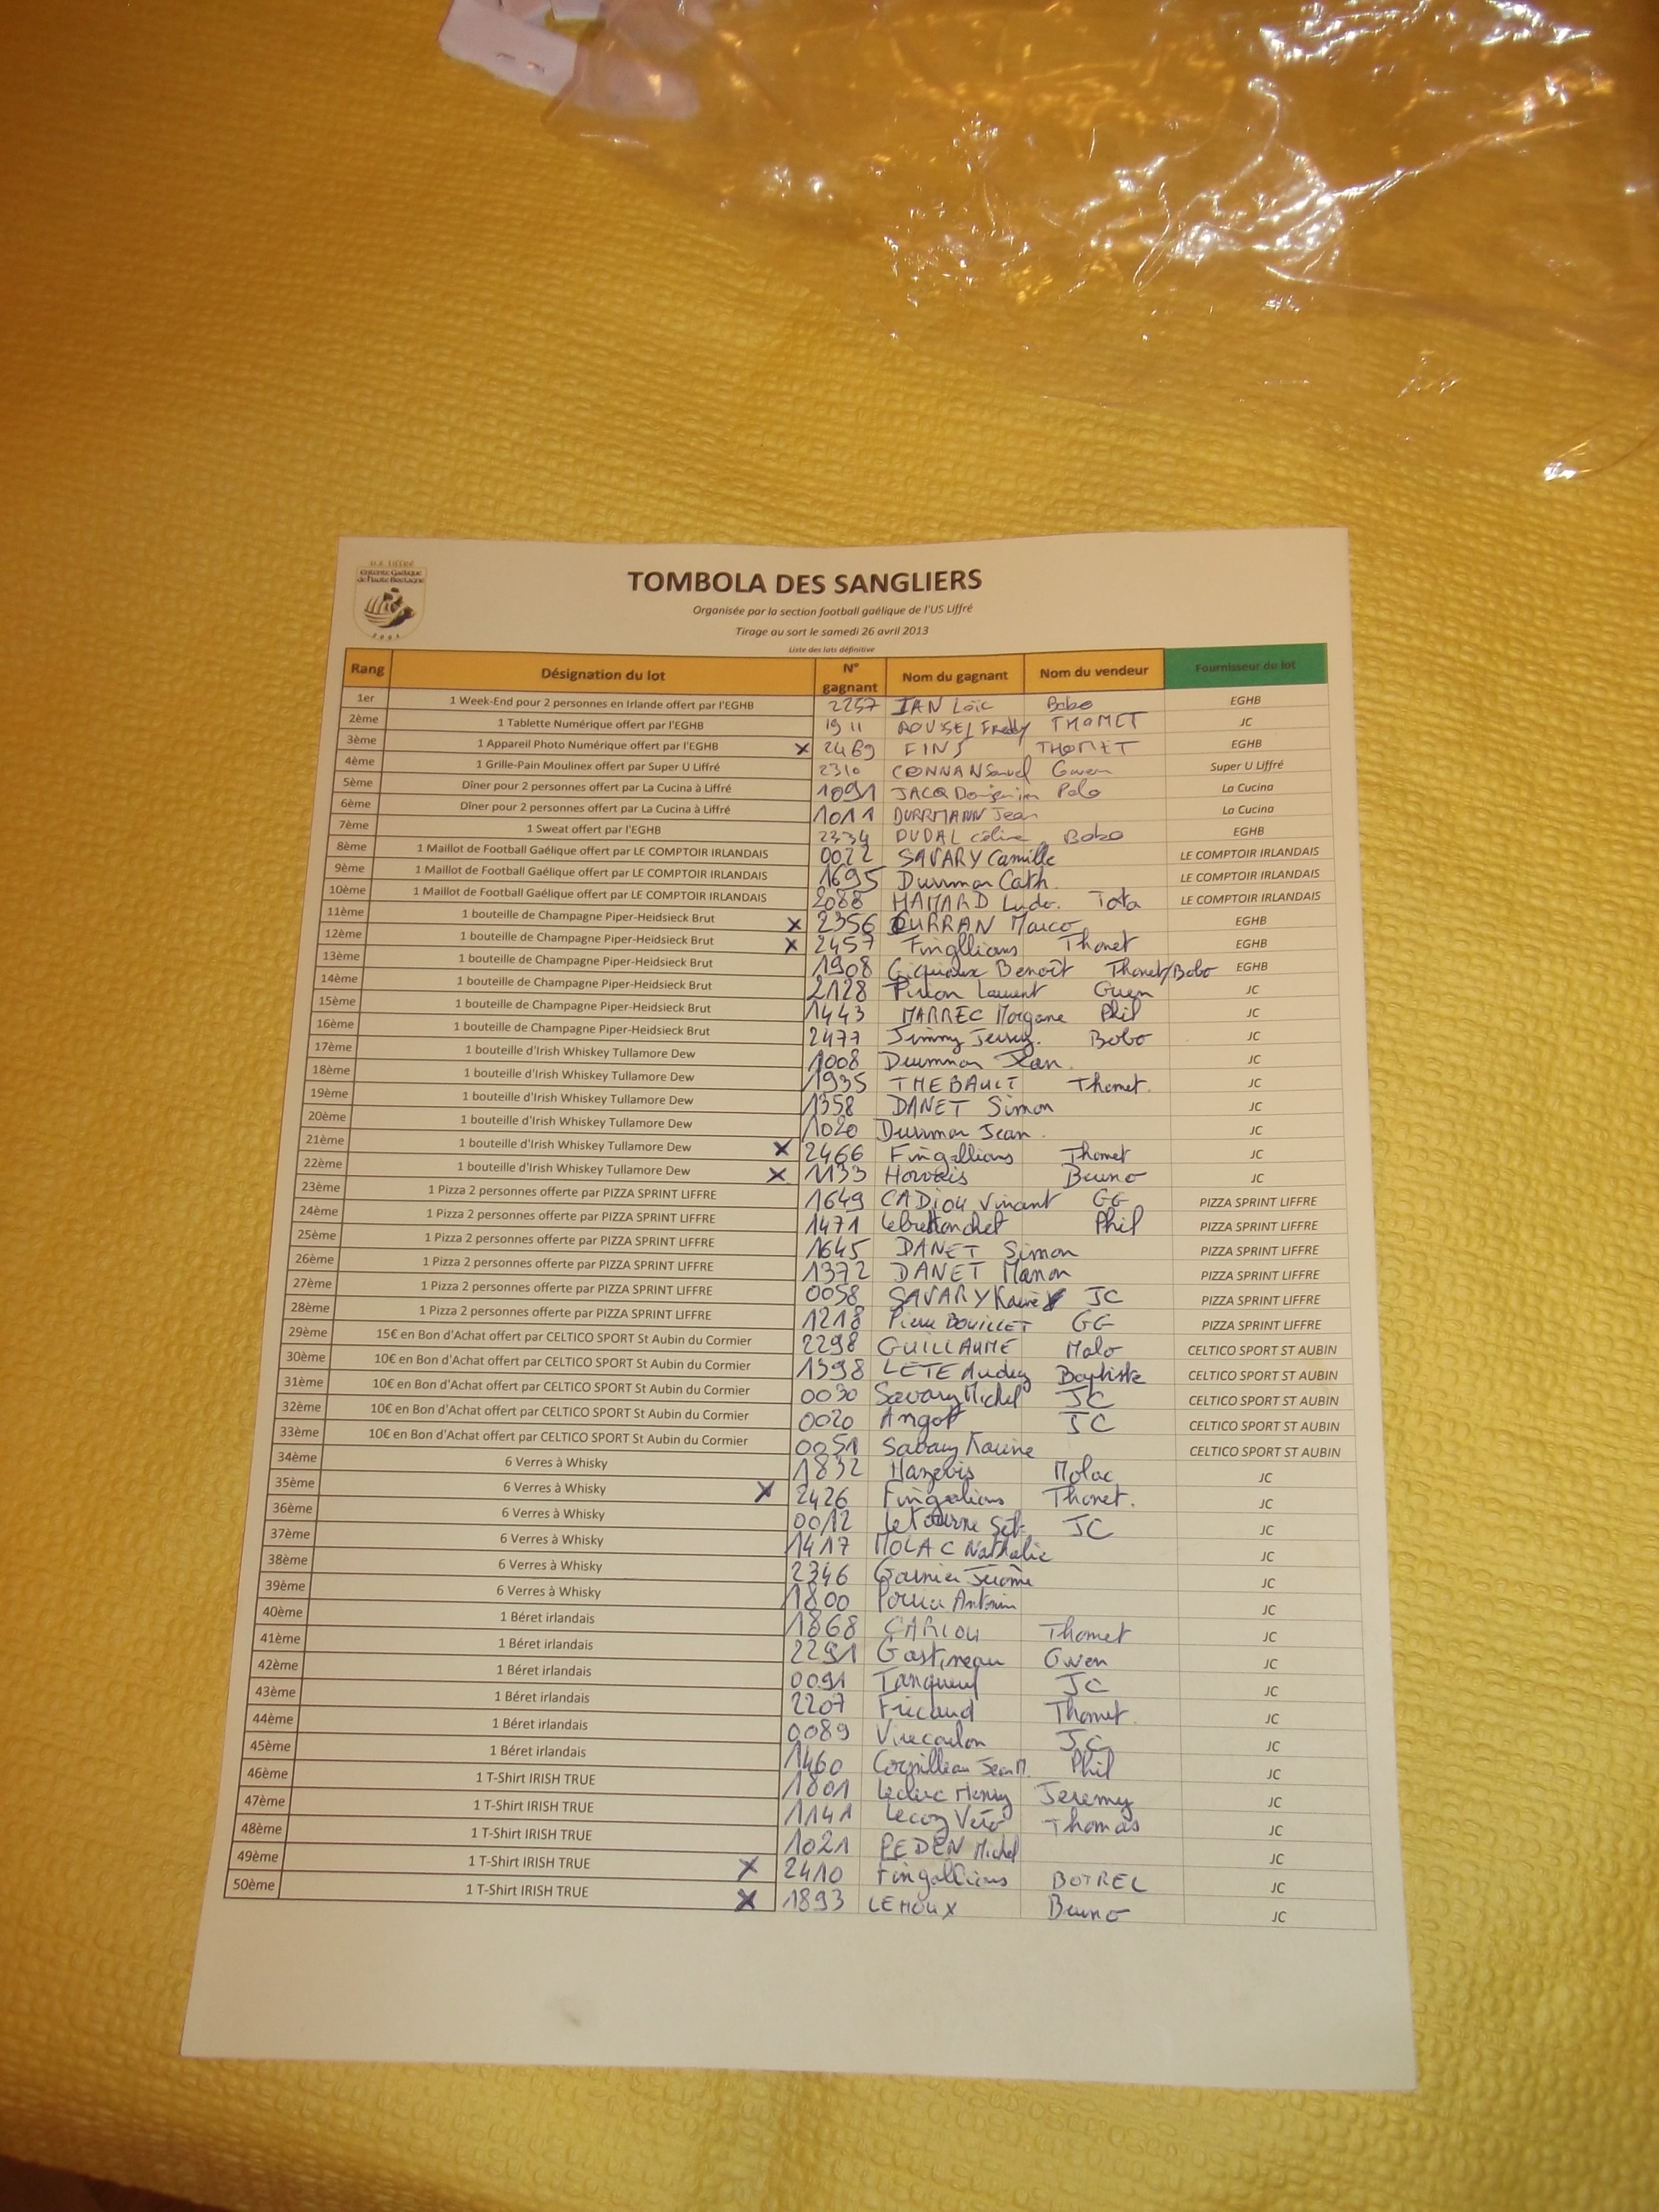 U.S LIFFRÉ
Entente Gaélique
de Haute Bretagne
2004
TOMBOLA DES SANGLIERS
Organisée par la section football gaélique de l'US Liffré
Tirage au sort le samedi 26 avril 2013
Liste des lots définitive
Rang Désignation du lot N° gagnant Nom du gagnant Nom du vendeur Fournisseur du lot
1er 1 Week-End pour 2 personnes en Irlande offert par l'EGHB 2257 IAN Loïc Bobo EGHB
2ème 1 Tablette Numérique offert par l'EGHB 1911 Freddy THOMET JC
3ème 1 Appareil Photo Numérique offert par l'EGHB X 2469 FINS THOMET EGHB
4ème 1 Grille-Pain Moulinex offert par Super U Liffré 2310 CONNAN Samuel Gwen Super U Liffré
5ème Dîner pour 2 personnes offert par La Cucina à Liffré 1091 JACQ Polo La Cucina
6ème Dîner pour 2 personnes offert par La Cucina à Liffré 1011 DURRMANN Jean La Cucina
7ème 1 Sweat offert par l'EGHB 2334 DUDAL Céline Bobo EGHB
8ème 1 Maillot de Football Gaélique offert par LE COMPTOIR IRLANDAIS 0022 SAVARY Camille LE COMPTOIR IRLANDAIS
9ème 1 Maillot de Football Gaélique offert par LE COMPTOIR IRLANDAIS 1695 Durrman Cath. LE COMPTOIR IRLANDAIS
10ème 1 Maillot de Football Gaélique offert par LE COMPTOIR IRLANDAIS 2088 HAMARD Ludo. Tota LE COMPTOIR IRLANDAIS
11ème 1 bouteille de Champagne Piper-Heidsieck Brut X 2356 CURRAN Marco EGHB
12ème 1 bouteille de Champagne Piper-Heidsieck Brut X 2457 Fingllians Thomet EGHB
13ème 1 bouteille de Champagne Piper-Heidsieck Brut 1908 Benoît Thomet/Bobo EGHB
14ème 1 bouteille de Champagne Piper-Heidsieck Brut 2128 Laurent Guen JC
15ème 1 bouteille de Champagne Piper-Heidsieck Brut 1443 MARREC Morgane Phil JC
16ème 1 bouteille de Champagne Piper-Heidsieck Brut 2477 Jimmy Jersey. Bobo JC
17ème 1 bouteille d'Irish Whiskey Tullamore Dew 1008 Durrman Jean. JC
18ème 1 bouteille d'Irish Whiskey Tullamore Dew 1935 THEBAULT Thomet. JC
19ème 1 bouteille d'Irish Whiskey Tullamore Dew 1358 DANET Simon JC
20ème 1 bouteille d'Irish Whiskey Tullamore Dew 1020 Durrman Jean. JC
21ème 1 bouteille d'Irish Whiskey Tullamore Dew X 2466 Fingallians Thomet JC
22ème 1 bouteille d'Irish Whiskey Tullamore Dew X 1133 Bruno JC
23ème 1 Pizza 2 personnes offerte par PIZZA SPRINT LIFFRE 1649 CADIOU Vincent GG PIZZA SPRINT LIFFRE
24ème 1 Pizza 2 personnes offerte par PIZZA SPRINT LIFFRE 1471 Phil PIZZA SPRINT LIFFRE
25ème 1 Pizza 2 personnes offerte par PIZZA SPRINT LIFFRE 1645 DANET Simon PIZZA SPRINT LIFFRE
26ème 1 Pizza 2 personnes offerte par PIZZA SPRINT LIFFRE 1372 DANET Manon PIZZA SPRINT LIFFRE
27ème 1 Pizza 2 personnes offerte par PIZZA SPRINT LIFFRE 0058 SAVARY JC PIZZA SPRINT LIFFRE
28ème 1 Pizza 2 personnes offerte par PIZZA SPRINT LIFFRE 1218 Pierre BOUILLET GG PIZZA SPRINT LIFFRE
29ème 15€ en Bon d'Achat offert par CELTICO SPORT St Aubin du Cormier 2298 GUILLAUME Malo CELTICO SPORT ST AUBIN
30ème 10€ en Bon d'Achat offert par CELTICO SPORT St Aubin du Cormier 1398 LETE Audrey Baptiste CELTICO SPORT ST AUBIN
31ème 10€ en Bon d'Achat offert par CELTICO SPORT St Aubin du Cormier 0030 Savary Michel JC CELTICO SPORT ST AUBIN
32ème 10€ en Bon d'Achat offert par CELTICO SPORT St Aubin du Cormier 0020 Angot JC CELTICO SPORT ST AUBIN
33ème 10€ en Bon d'Achat offert par CELTICO SPORT St Aubin du Cormier 0051 Savary Karine CELTICO SPORT ST AUBIN
34ème 6 Verres à Whisky 1832 Molac JC
35ème 6 Verres à Whisky X 2426 Fingalians Thomet. JC
36ème 6 Verres à Whisky 0012 Seb. JC JC
37ème 6 Verres à Whisky 1417 MOLAC Nathalie JC
38ème 6 Verres à Whisky 2346 Garnier Jérôme JC
39ème 6 Verres à Whisky 1800 Antonin JC
40ème 1 Béret irlandais 1868 CARIOU Thomet JC
41ème 1 Béret irlandais 2291 Gastineau Gwen JC
42ème 1 Béret irlandais 0091 JC JC
43ème 1 Béret irlandais 2207 Fricaud Thomet. JC
44ème 1 Béret irlandais 0089 JC JC
45ème 1 Béret irlandais 1460 Cornilleau Jean M. Phil JC
46ème 1 T-Shirt IRISH TRUE 1801 Leclerc Jeremy JC
47ème 1 T-Shirt IRISH TRUE 1141 Lecoz Véro Thomas JC
48ème 1 T-Shirt IRISH TRUE 1021 PEDEN Michel JC
49ème 1 T-Shirt IRISH TRUE X 2410 Fingallians BOTREL JC
50ème 1 T-Shirt IRISH TRUE X 1893 LEHOUX Bruno JC